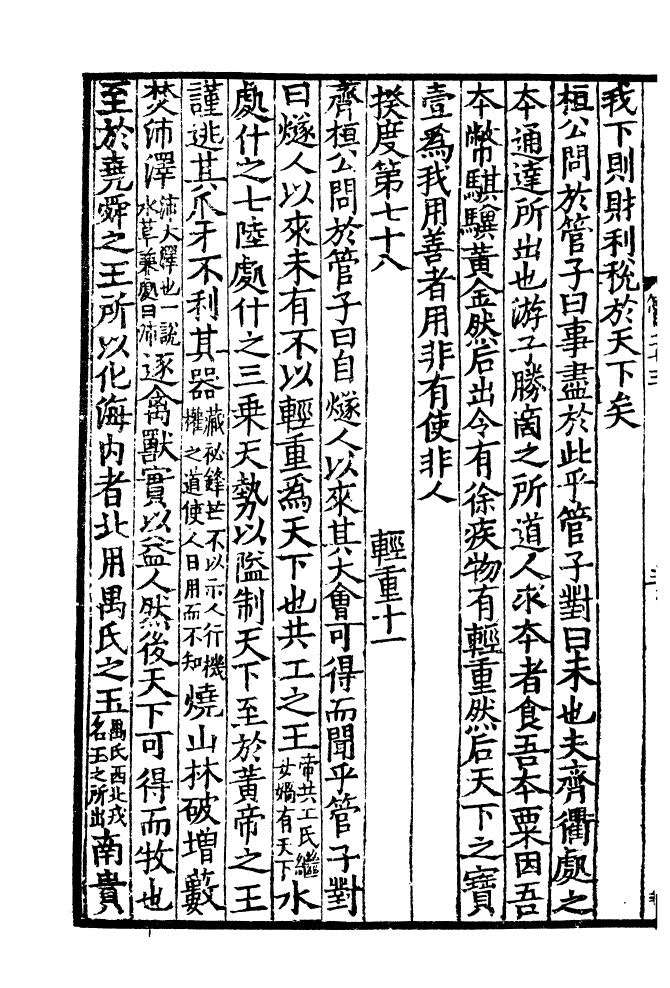 我下則財利稅於天下矣
桓公問於管子曰事盡於此乎管子對曰未也夫齊衢處之
本通達所出也游子勝商之所道人求本者食吾本粟因吾
本幣騏驥黃金然后出令有徐疾物有輕重然后天下之寶
壹爲我用善者用非有使非人
揆度第七十八　輕重十一
齊桓公問於管子曰自燧人以來其大會可得而聞乎管子對
曰燧人以來未有不以輕重爲天下也共工之王帝共工氏繼女媧有天下水
處什之七陸處什之三乗天勢以隘制天下至於黃帝之王
謹逃其爪牙不利其器藏祕鋒芒不以示人行機權之道使人日用而不知燒山林破增藪
焚沛澤沛大澤也一說水草兼處曰沛逐禽獸實以益人然後天下可得而牧也
至於堯舜之王所以化海内者北用禺氏之玉禺氏西北戎名玉之所出南貴